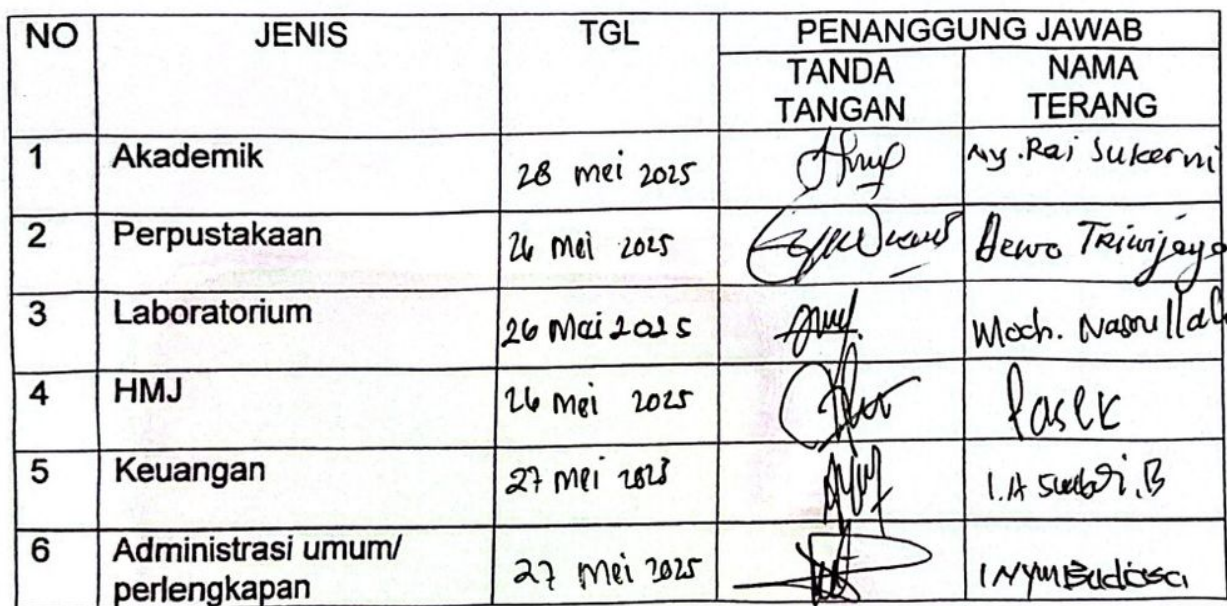 NO JENIS TGL PENANGGUNG JAWAB
TANDA TANGAN NAMA TERANG
1 Akademik 28 mei 2025 Ny. Rai Sukerni
2 Perpustakaan 26 mei 2025 Dewo Triwijaya
3 Laboratorium 26 Mai 2025 Moch. Nasrullah
4 HMJ 26 mei 2025 Pasek
5 Keuangan 27 mei I.A
6 Administrasi umum/
perlengkapan 27 mei 2025 I Nym Budiasa